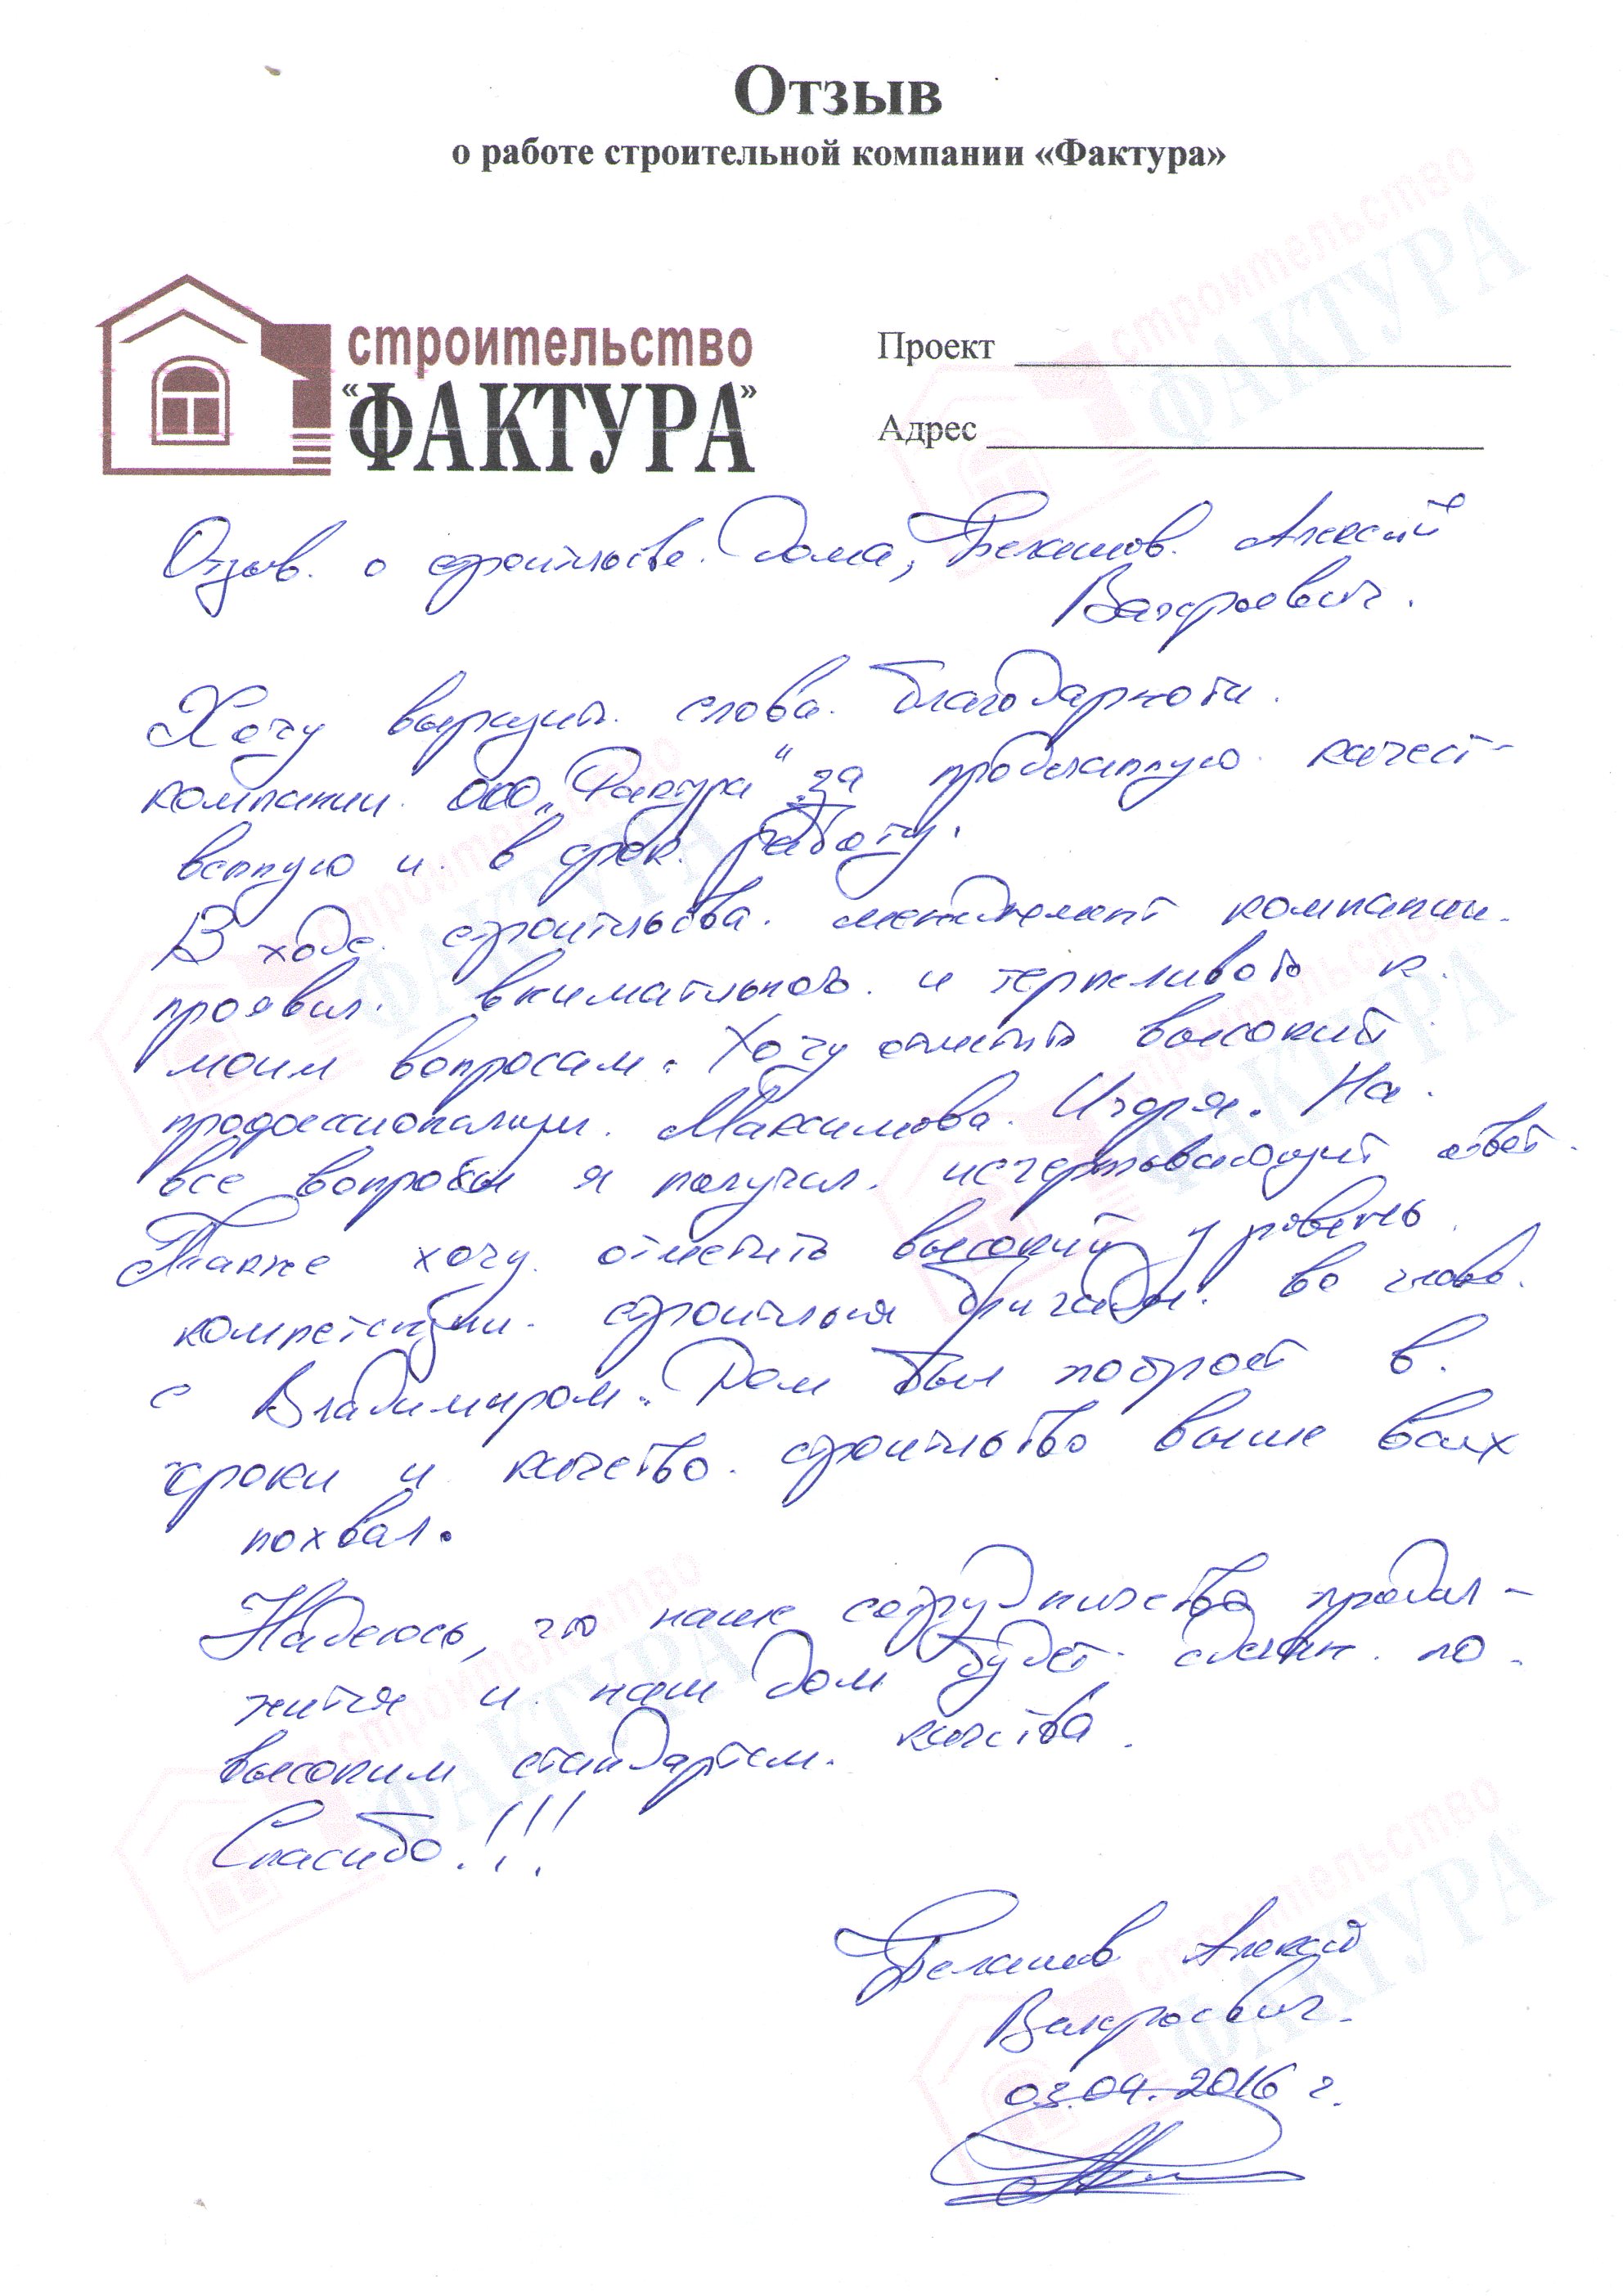 Отзыв
о работе строительной компании «Фактура»
строительство
"ФАКТУРА"
Проект
Адрес
Отзыв о строительстве Дома, Алексей
Валерьевич.
Хочу выразить слова благодарности
компании ООО „Фактура" за проделанную качест-
венную и в срок работу.
В ходе строительства менеджмент компании
проявил внимательность и терпеливость к
моим вопросам. Хочу отметить высокий
профессионализм Максимова Игоря. На
все вопросы я получил исчерпывающий ответ.
Также хочу отметить высокий уровень
компетенции строительной бригады во главе
с Владимиром. Дом был построен в
сроки и качество строительства выше всех
похвал.
Надеюсь, что наше сотрудничество продол-
жится и наш дом будет сделан по
высоким стандартам качества.
Спасибо!!!
Алексей
Валерьевич.
03.04.2016 г.